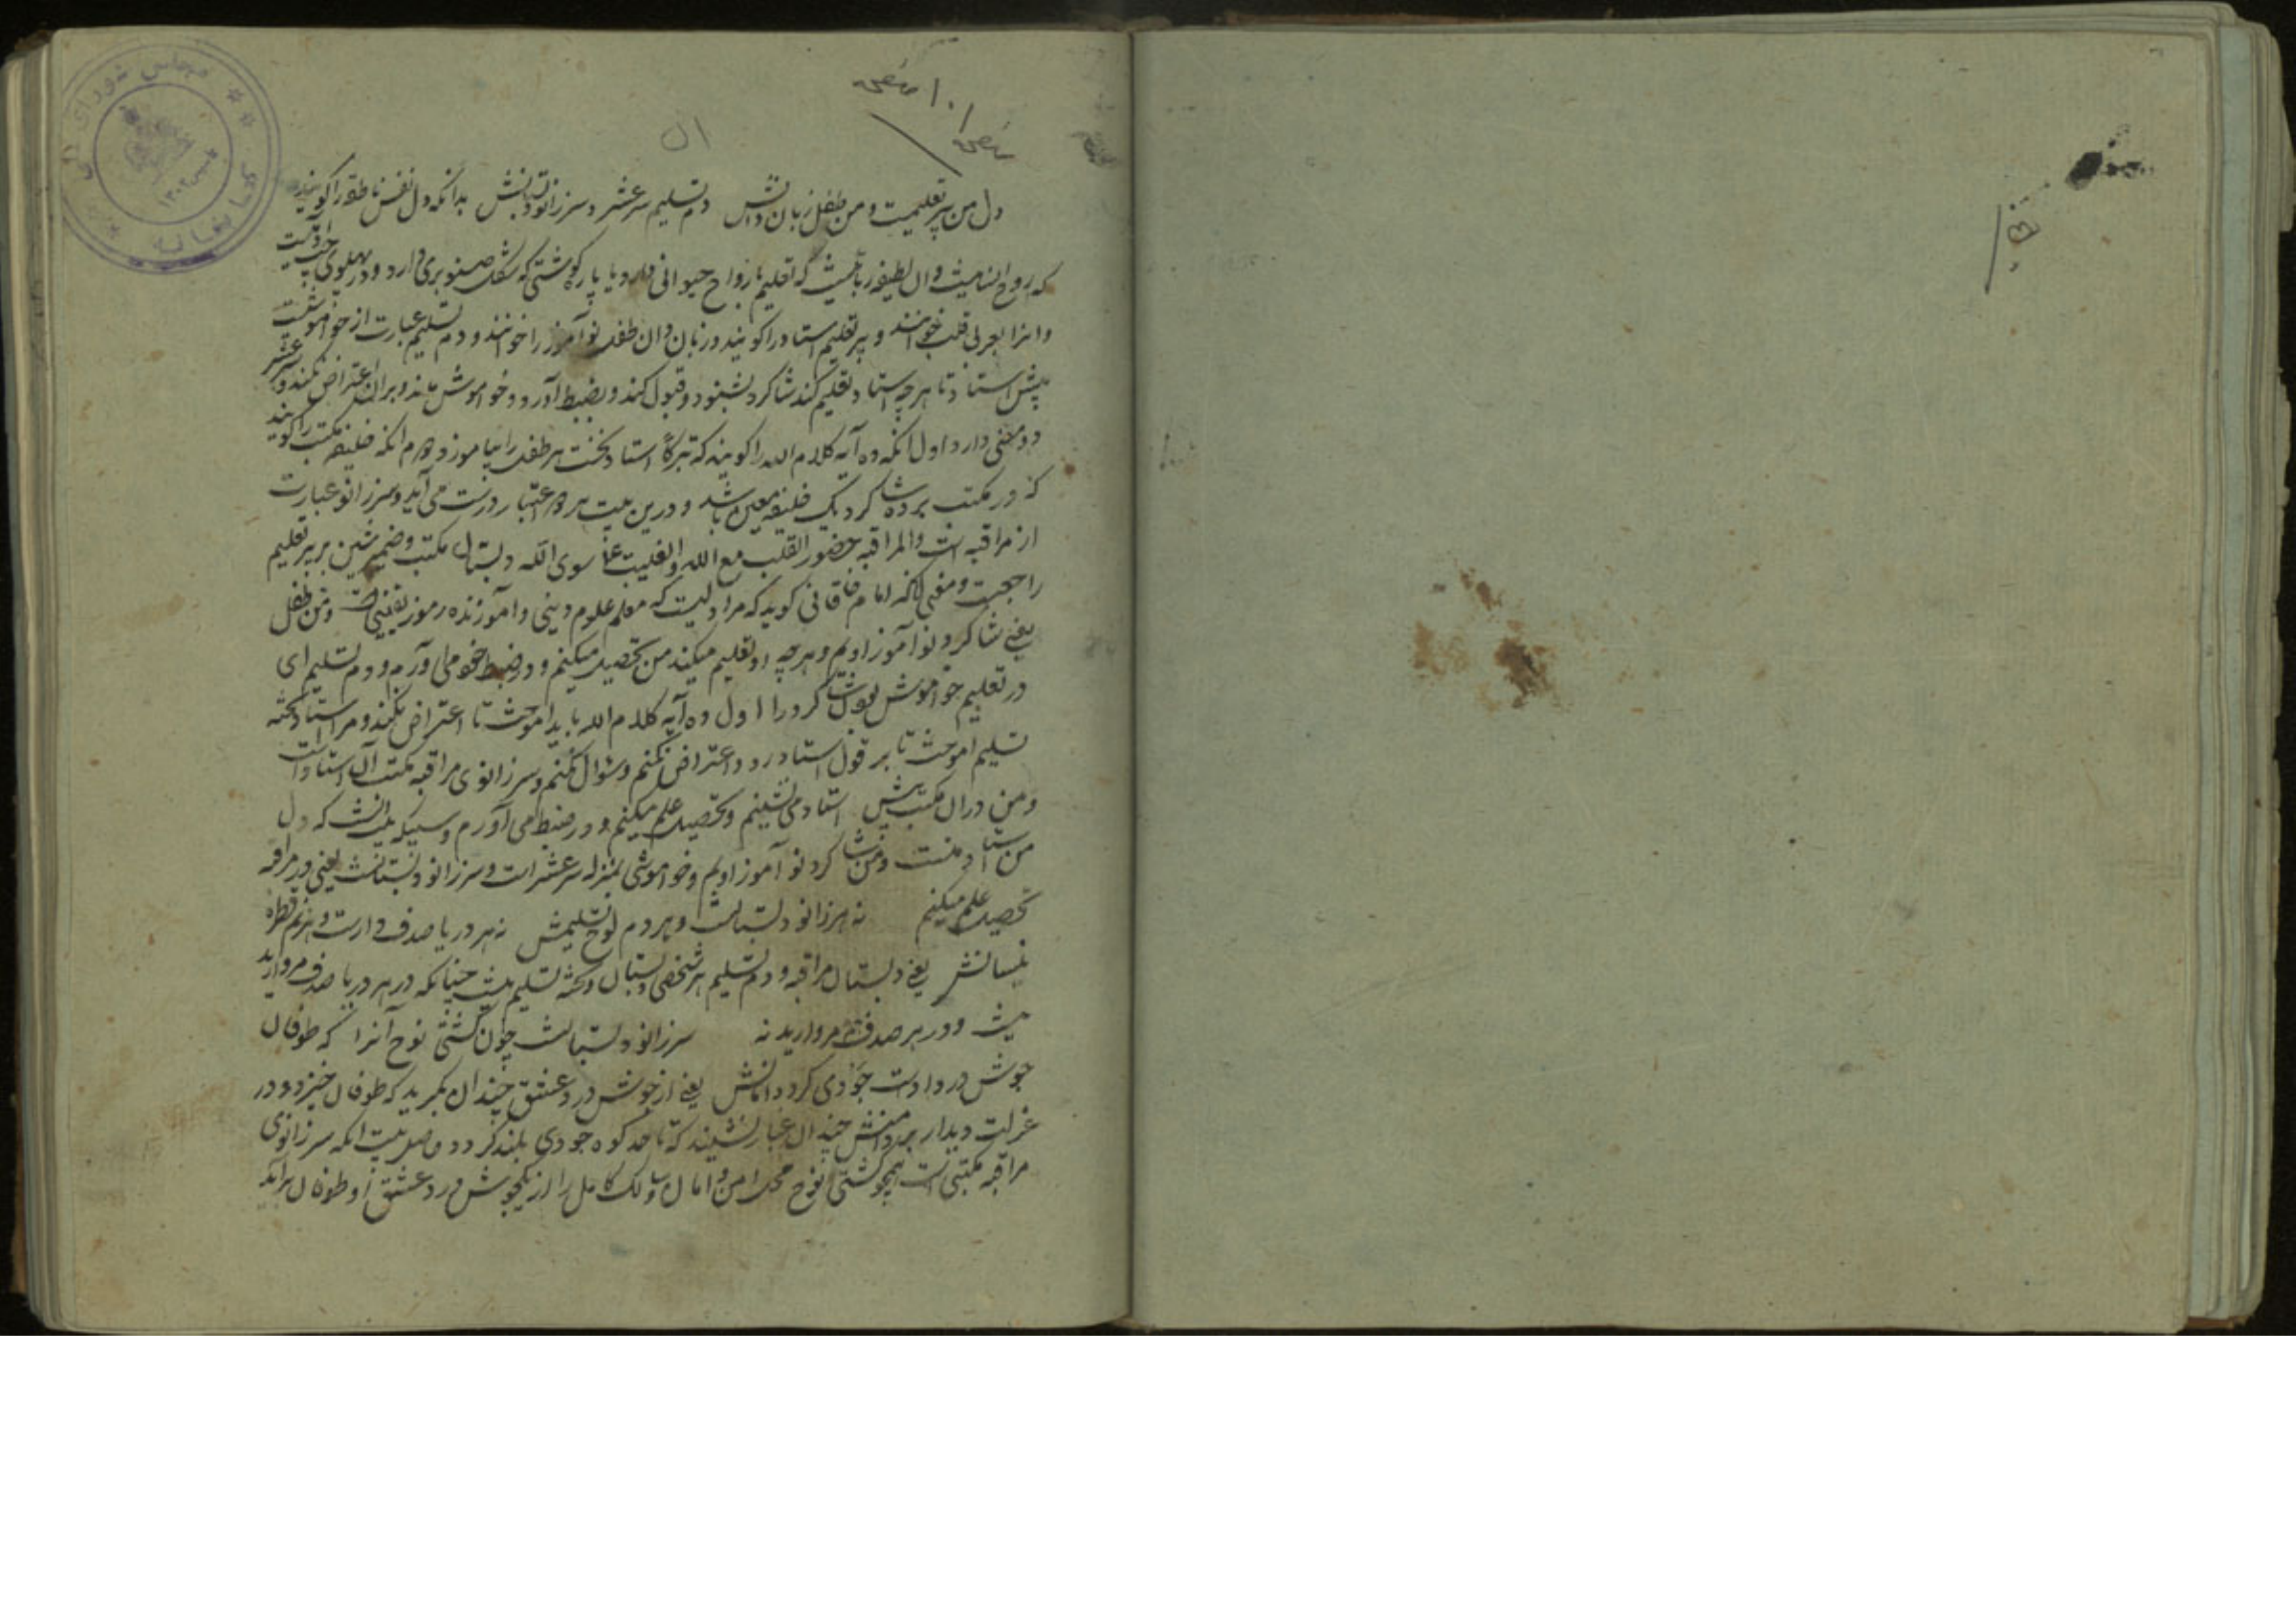 دل من پیر تعلیمست و من طفل زبان دانش دم تسلیم سر عشر و سر زانو دبستانش بدانکه دل نفس ناطقه را کویند
که روح انسانیست و آن لطیفه ربانیست که تعلیم بارواح حیوانی دارد و یا پاره کوشتی که شکل صنوبری دارد و در پهلوی چپ آدمیست
و انرا بعربی قلب خوانند و پیر تعلیم استاد را کویند و زبان دان طفل نوآموز را خوانند و دم تسلیم عبارت از خواموشیست
پیش استاد تا هر چه استاد تعلیم کند شاکرد بشنود و قبول کند و بضبط آورد و خواموش ماند و بران اعتراض نکند و سر عشر
دو معنی دارد اول انکه ده آیه کلام الله را کویند که تبرکا استاد نخست هر طفل را بیاموزد دوم انکه خلیفه مکتب را کویند
که در مکتب بر ده شاکرد یک خلیفه معین باشد و درین بیت هر دو اعتبار درست می آید و سر زانو عبارت
از مراقبه است والمراقبه حضور القلب مع الله والغیبت عما سوی الله دبستان مکتب و ضمیر شین بر پیر تعلیم
راجعست و معنی آنکه امام خاقانی کوید که مرا دلیست که معلم علوم دینی و آموزنده رموز یقینی است و من طفل
یعنی شاکرد نوآموز اویم و هر چه او تعلیم میکند من تحصیل میکنم و در ضبط خود می آورم و دم تسلیم ای
در تعلیم خواموش بودن شاکرد را اول ده آیه کلام الله باید آموخت تا اعتراض نکند و مرا استاد تخته
تسلیم آموخت تا بر قول استاد رد و اعتراض نکنم و سؤال نکنم و سر زانوی مراقبه مکتب آن استاد است
و من در آن مکتب پیش استاد می نشینم و تحصیل علم میکنم و در ضبط می آورم که دل
من استاد منست و من شاکرد نوآموز اویم و خواموشی بمنزله سر عشر است و سر زانو دبستانست یعنی در مراقبه
تحصیل علم میکنم نه هر زانو دبستانست و هر دم لوح تسلیمش نه هر دریا صدف دارست و هر نم قطره
نیسانش یعنی دبستان مراقبه و دم تسلیم هر شخصی دبستان و تخته تسلیم نیست چنانکه در هر دریا صدف مروارید
نیست و در هر صدف مروارید نه سر زانو دبستانست چون کشتی نوح آنرا که طوفان
جوش درد اوست جودی کرد دامانش یعنی از جوش درد عشق چندان بکرید که طوفان خیزد و در
عزلت دیدار بر دامنش چندان غبار نشیند که تا حد کوه جودی بلند کردد حاصل بیت انکه سر زانوی
مراقبه مکتبی است همچو کشتی نوح محل امن و امان سالک کامل را از جوش درد عشق او طوفان برآید